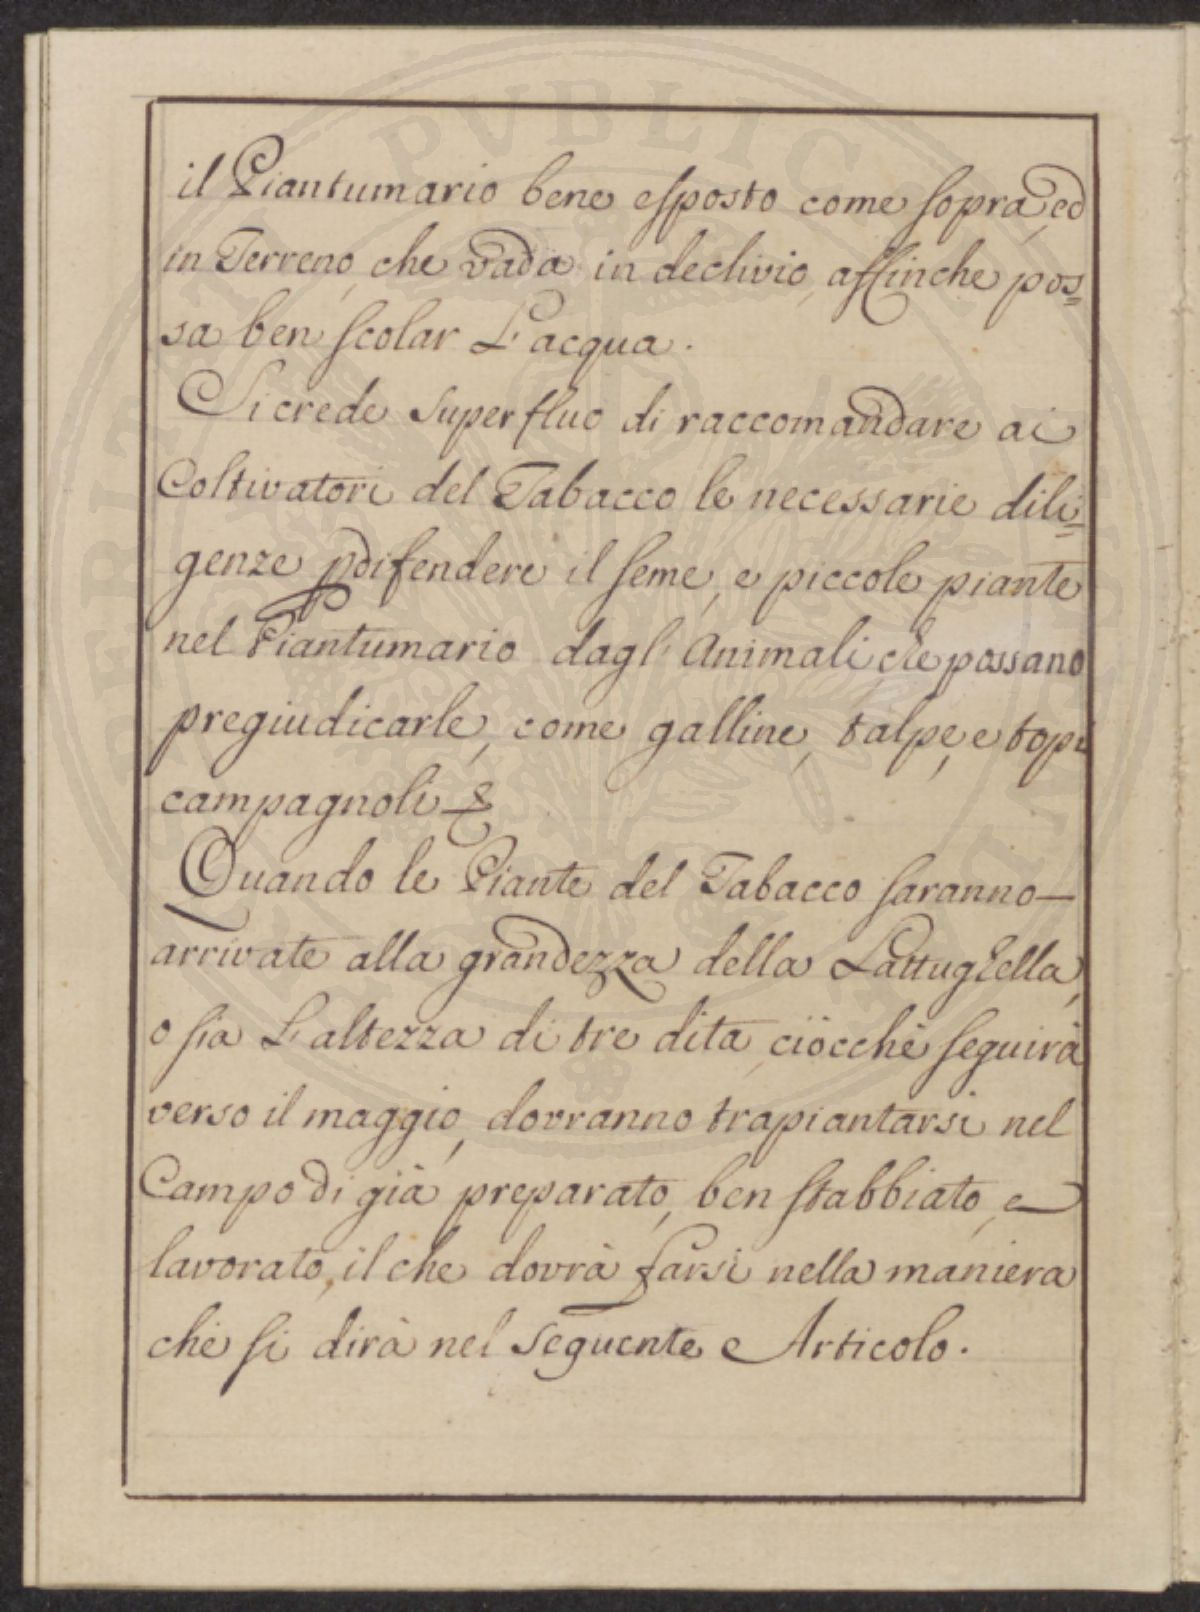 il Piantumario bene esposto come sopra, ed
in Terreno, che vada in declivio, affinche pos=
sa ben scolar L'acqua.
Si crede superfluo di raccomandare ai
Coltivatori del Tabacco le necessarie dili=
genze p difendere il seme, e piccole piante
nel Piantumario dagl' Animali che possano
pregiudicarle, come galline, talpe, e topi
campagnoli &
Quando le Piante del Tabacco saranno—
arrivate alla grandezza della Lattughella,
o sia L'altezza di tre dita, ciocchè seguirà
verso il maggio, dovranno trapiantarsi nel
Campo di già preparato, ben stabbiato, e
lavorato, il che dovrà farsi nella maniera
che si dirà nel seguente Articolo.